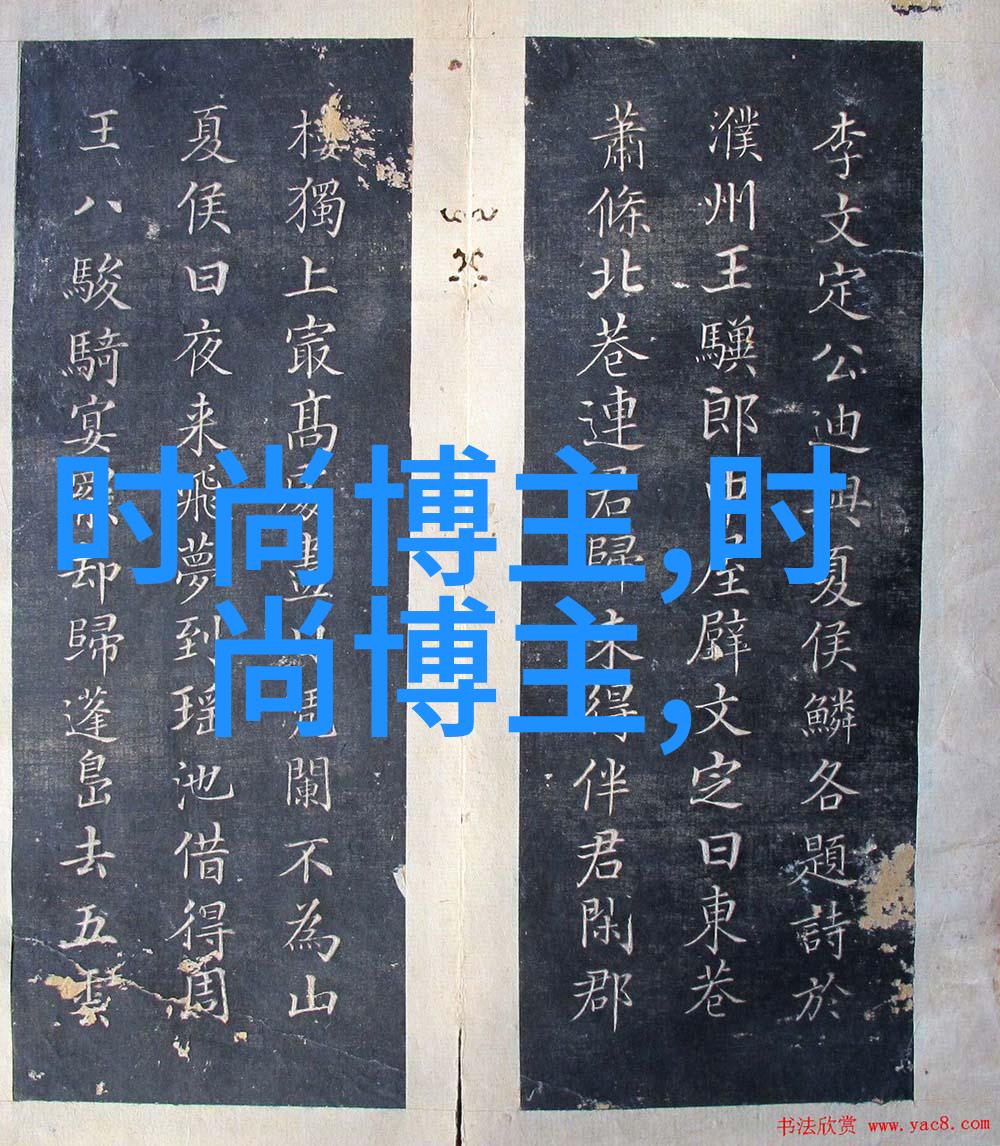 李文定公迪與夏侯鱗各題詩於
濮州王驥郎中屋壁文定曰東巷
蕭條北巷連歸未得伴君閑郡
樓獨上最高處盡闌不為山
夏侯曰夜来飛夢到瑶池借得周
王八駿騎宴罷却歸蓬島去五雲
时尚博主,时
尚博主,
书法欣赏 www.yac8.com